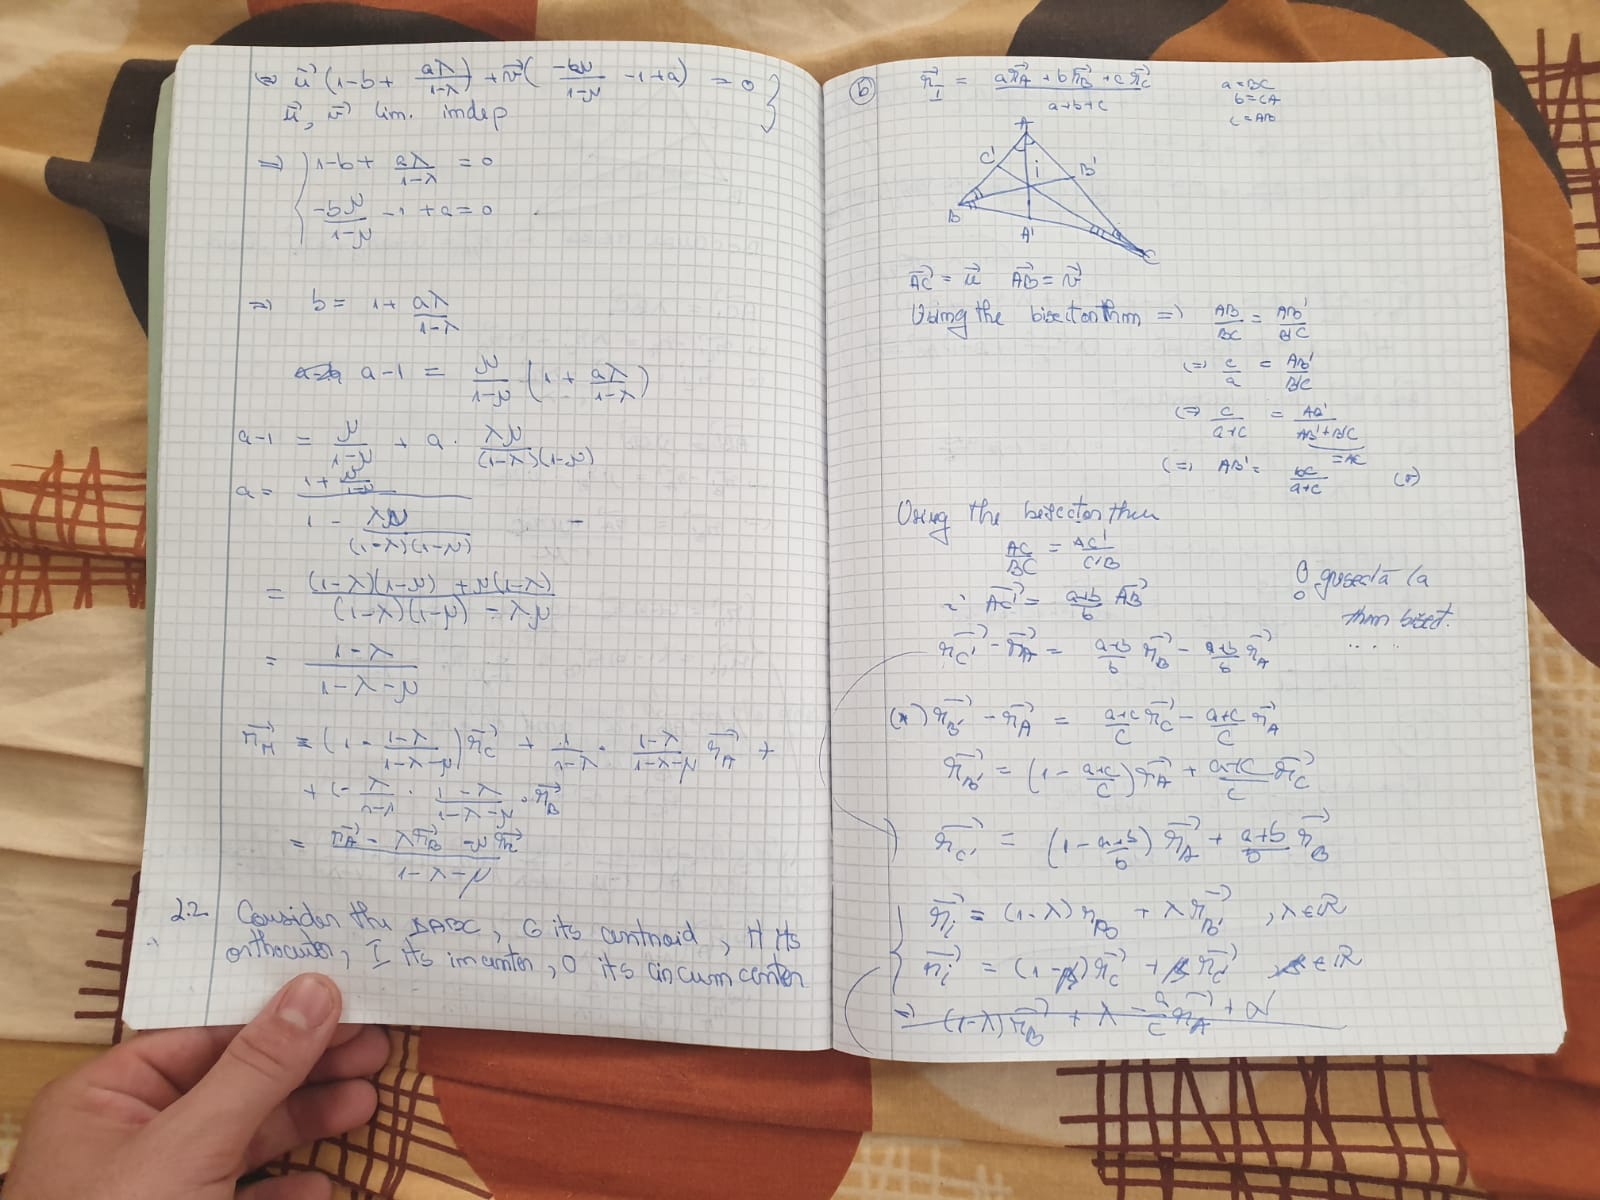 ⇒ u⃗ (1-b + aλ/(1-λ)) + v⃗ (-bμ/(1-μ) - 1 + a) = 0 }
u⃗, v⃗ lin. indep
⇒ { 1-b + aλ/(1-λ) = 0
-bμ/(1-μ) - 1 + a = 0
⇒ b = 1 + aλ/(1-λ)
a-1 = μ/(1-μ) (1 + aλ/(1-λ))
a-1 = μ/(1-μ) + a · λμ/((1-λ)(1-μ))
a = (1 + μ/(1-μ)) / (1 - λμ/((1-λ)(1-μ)))
= ((1-λ)(1-μ) + μ(1-λ)) / ((1-λ)(1-μ) - λμ)
= (1-λ)/(1-λ-μ)
r⃗_M = (1 - (1-λ)/(1-λ-μ)) r⃗_C + 1/(1-λ) · (1-λ)/(1-λ-μ) r⃗_A +
+ (- λ/(1-λ) · (1-λ)/(1-λ-μ) · r⃗_B
= (r⃗_A - λr⃗_B - μr⃗_C)/(1-λ-μ)
2.2 Consider the ΔABC, G its centroid, H its
orthocenter, I its incenter, O its circumcenter
(b) r⃗_I = (a r⃗_A + b r⃗_B + c r⃗_C)/(a+b+c)
a = BC
b = CA
c = AB
A
C' i B'
B
A'
C
AC⃗ = u⃗ AB⃗ = v⃗
Using the bisector thm ⇒ AB/BC = AB'/B'C
(⇒ c/a = AB'/B'C
(⇒ c/(a+c) = AB'/(AB'+B'C)
= AC
(⇒ AB' = bc/(a+c) (*)
Using the bisector thm
AC/BC = AC'/C'B
⇒ AC'⃗ = (a+b)/b AB⃗
! greșeală la
thm bisect.
....
r⃗_C' - r⃗_A = (a+b)/b r⃗_B - (a+b)/b r⃗_A
(*) r⃗_B' - r⃗_A = (a+c)/c r⃗_C - (a+c)/c r⃗_A
r⃗_B' = (1 - (a+c)/c) r⃗_A + (a+c)/c r⃗_C
r⃗_C' = (1 - (a+b)/b) r⃗_A + (a+b)/b r⃗_B
{ r⃗_i = (1-λ) r_B + λ r⃗_B' , λ∈ℝ
r⃗_i = (1-β) r⃗_C + β r⃗_C' β∈ℝ
⇒ (1-λ) r⃗_B + λ - a/c r⃗_A + α